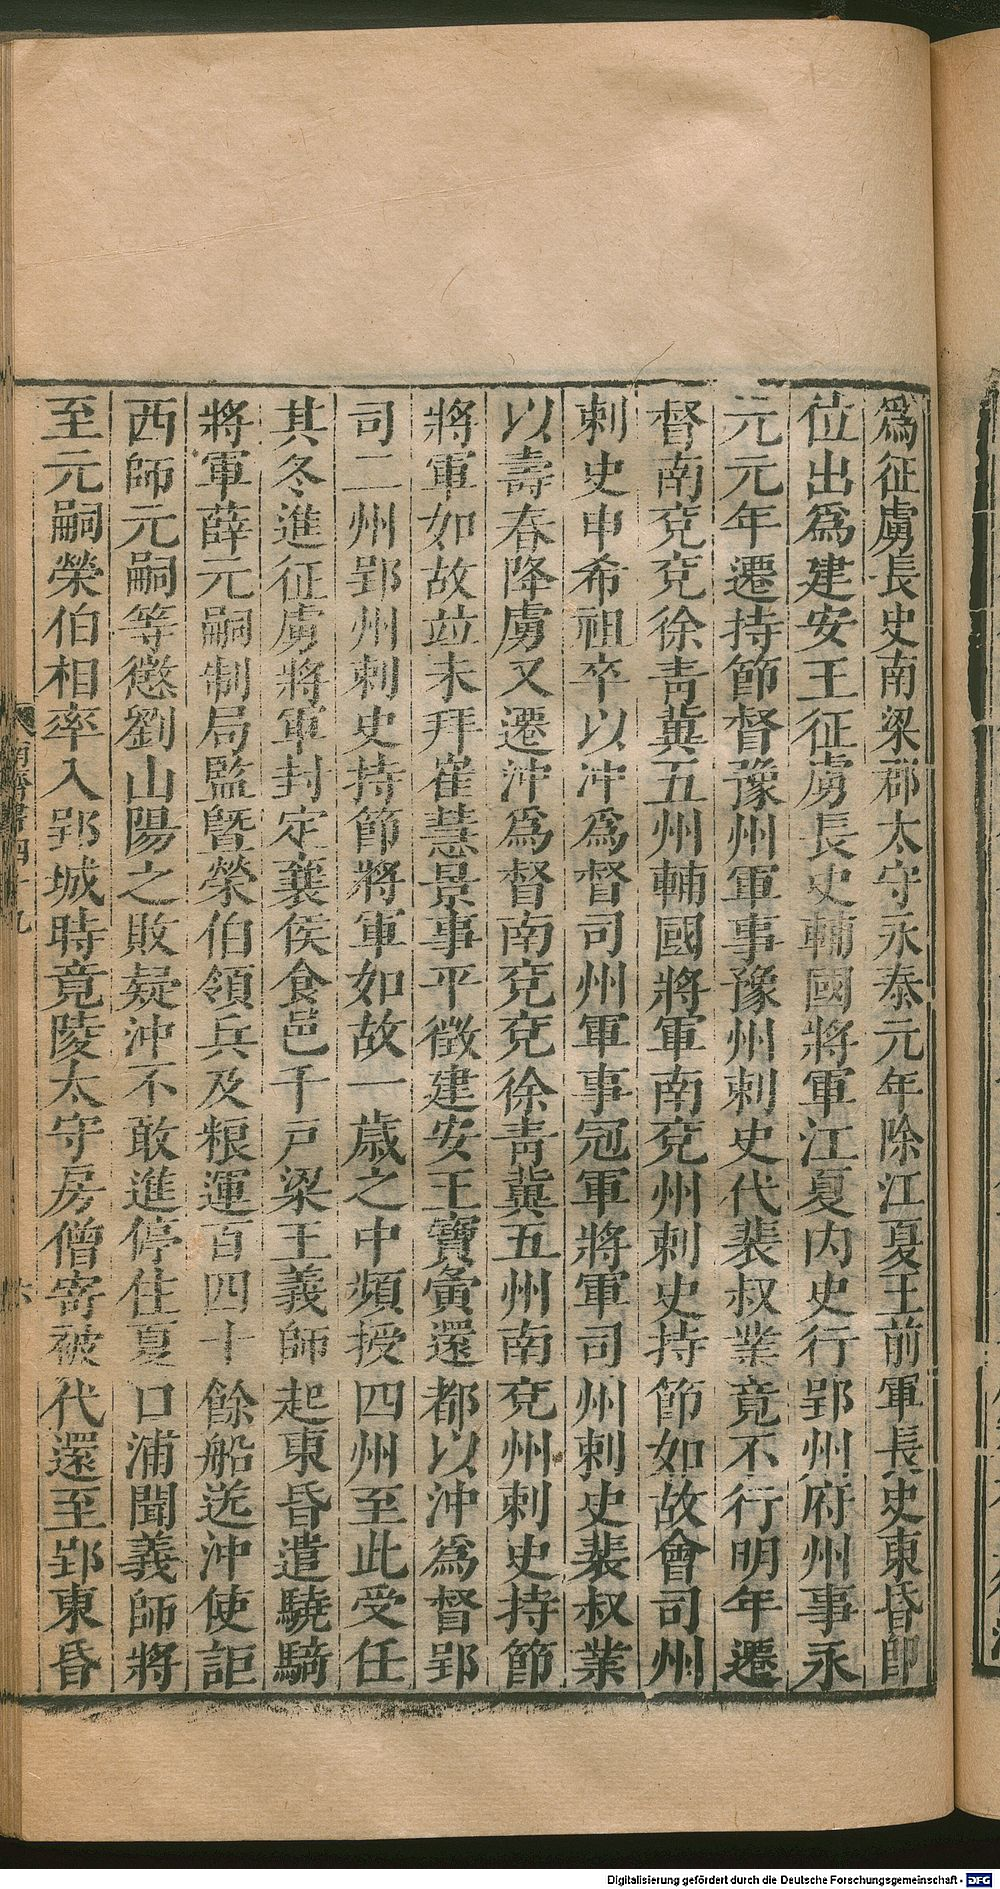 爲征虜長史南梁郡太守永泰元年除江夏王前軍長史東昏卽
位出爲建安王征虜長史輔國將軍江夏內史行郢州府州事永
元元年遷持節督豫州軍事豫州刺史代裴叔業竟不行明年遷
督南兗兗徐青冀五州輔國將軍南兗州刺史持節如故會司州
刺史申希祖卒以沖爲督司州軍事冠軍將軍司州刺史裴叔業
以壽春降虜又遷沖爲督南兗兗徐青冀五州南兗州刺史持節
將軍如故竝未拜崔慧景事平徵建安王寶夤還都以沖爲督郢
司二州郢州刺史持節將軍如故一歲之中頻授四州至此受任
其冬進征虜將軍封定襄侯食邑千戶梁王義師起東昏遣驍騎
將軍薛元嗣制局監曁榮伯領兵及粮運百四十餘船送沖使詎
西師元嗣等懲劉山陽之敗疑沖不敢進停住夏口浦聞義師將
至元嗣榮伯相率入郢城時竟陵太守房僧寄被代還至郢東昏
南齊書四十九
六
Digitalisierung gefördert durch die Deutsche Forschungsgemeinschaft - DFG